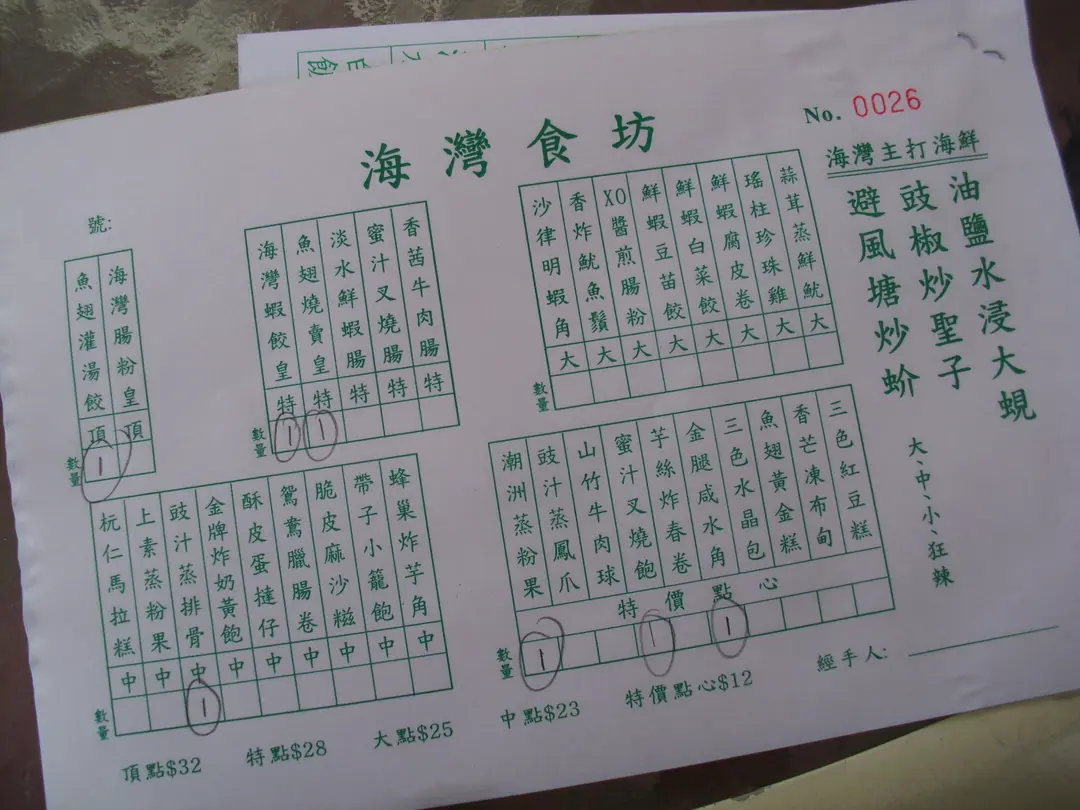 海灣食坊
No. 0026
海灣主打海鮮
油鹽水浸大蜆
豉椒炒聖子
避風塘炒蚧
大、中、小、狂辣
號:
海灣腸粉皇 頂
魚翅灌湯餃 頂 1
數量
香茜牛肉腸 特
蜜汁叉燒腸 特
淡水鮮蝦腸 特
魚翅燒賣皇 特 1
海灣蝦餃皇 特 1
數量
蒜茸蒸鮮魷 大
瑤柱珍珠雞 大
鮮蝦腐皮卷 大
鮮蝦白菜餃 大
鮮蝦豆苗餃 大
XO醬煎腸粉 大
香炸魷魚鬚 大
沙律明蝦角 大
數量
蜂巢炸芋角 中
帶子小籠飽 中
脆皮麻沙糍 中
鴛鴦臘腸卷 中
酥皮蛋撻仔 中
金牌炸奶黃飽 中
豉汁蒸排骨 中 1
上素蒸粉果 中
杬仁馬拉糕 中
數量
三色紅豆糕
香芒凍布甸
魚翅黃金糕
三色水晶包
金腿咸水角
芋絲炸春卷
蜜汁叉燒飽
山竹牛肉球
豉汁蒸鳳爪
潮洲蒸粉果
特價點心
數量 1 1 1
經手人:
頂點$32 特點$28 大點$25 中點$23 特價點心$12